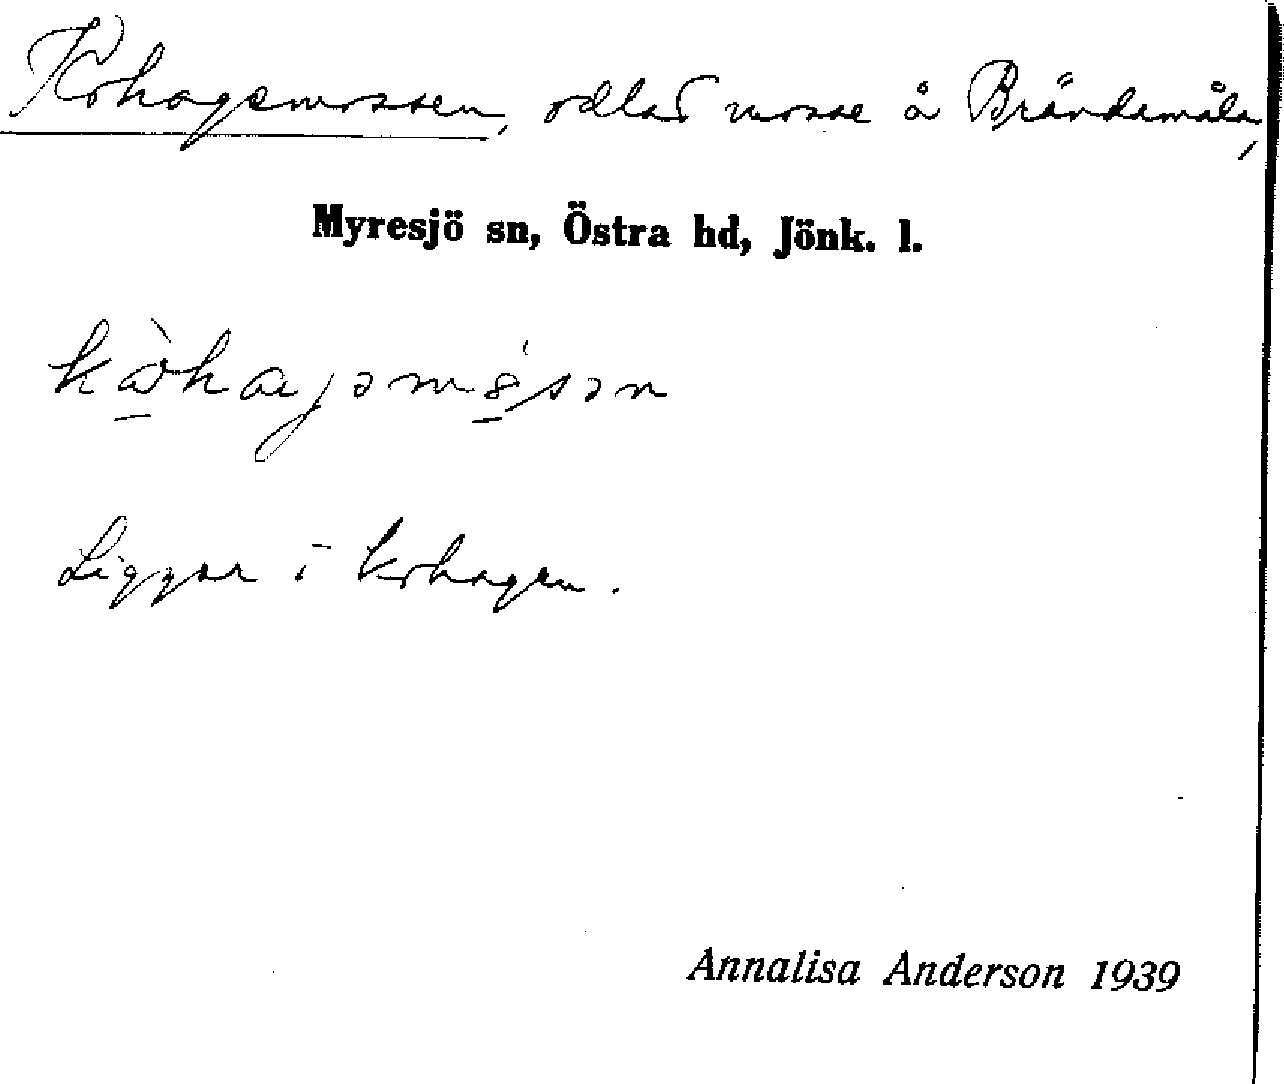 Kohagemossen, odlad mosse å Brändamåla,
Myresjö sn, Östra hd, Jönk. l.
Ligger i kohagen.
Annalisa Anderson 1939